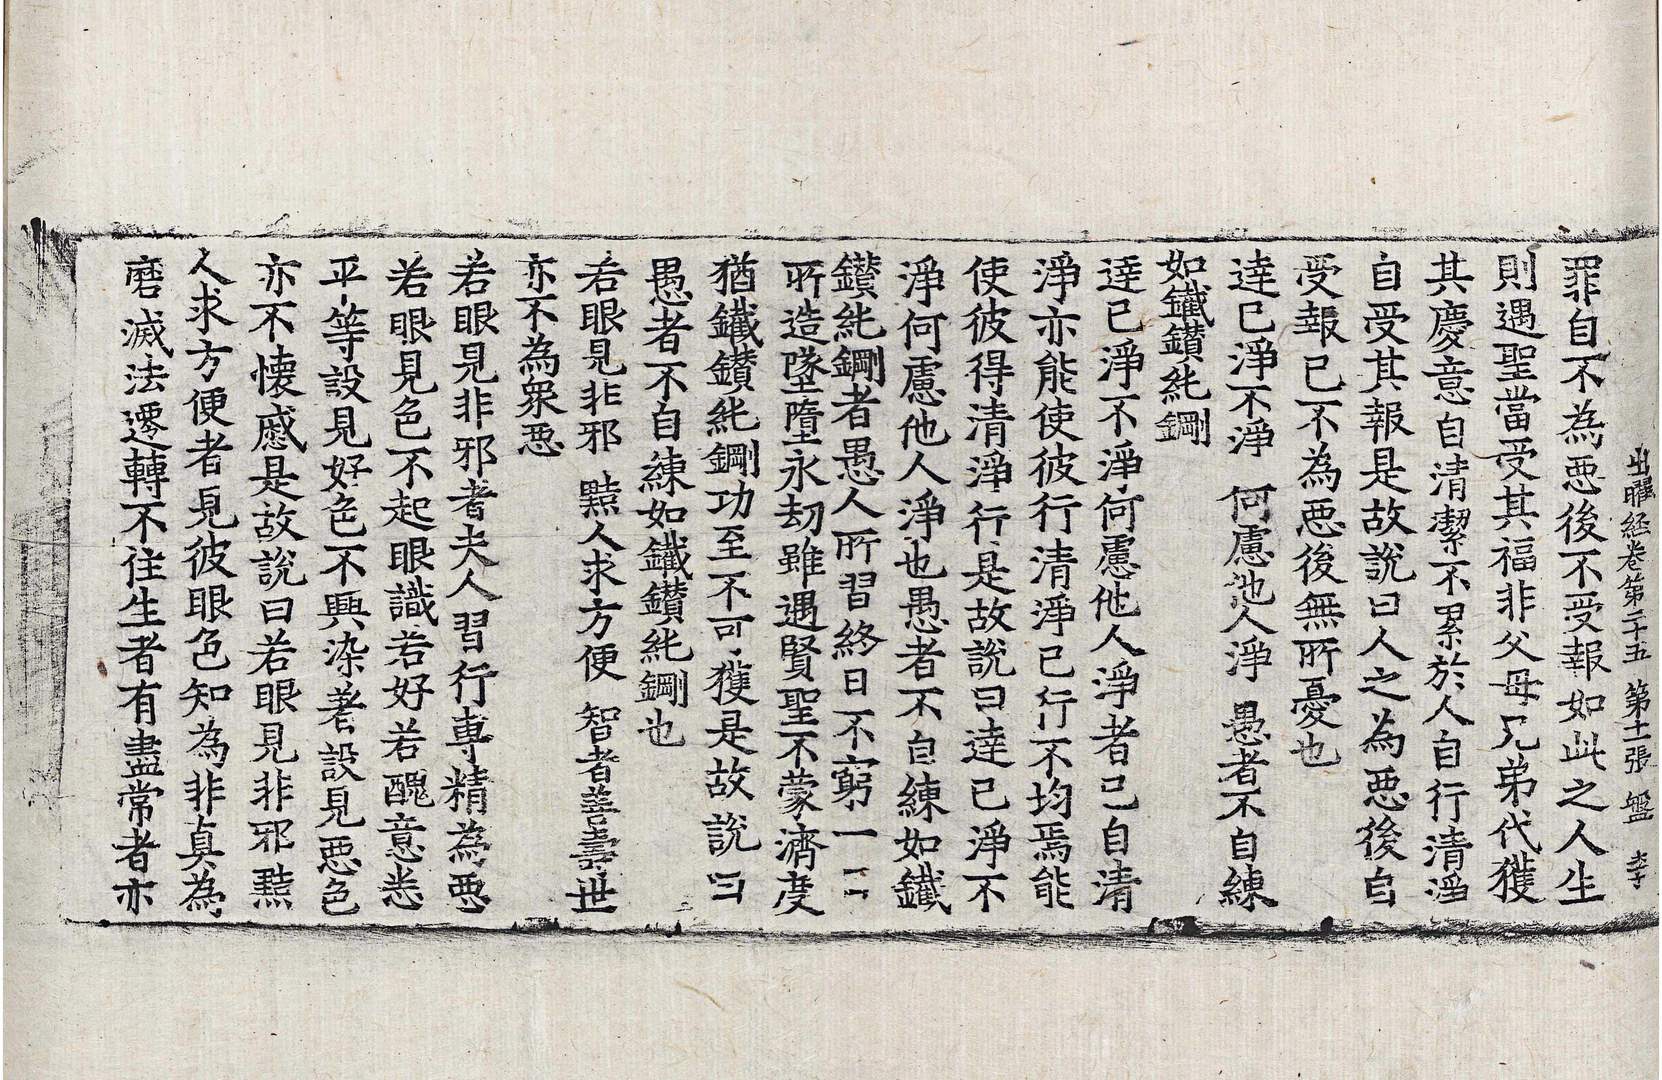 出曜経卷第二十五 第十一張 盤 李
罪自不為惡後不受報如此之人生
則遇聖當受其福非父母兄弟代獲
其慶意自清潔不累於人自行清淨
自受其報是故說曰人之為惡後自
受報已不為惡後無所憂也
達已淨不淨 何慮他人淨 愚者不自練
如鐵鑽純鋼
達已淨不淨何慮他人淨者己自清
淨亦能使彼行清淨已行不均焉能
使彼得清淨行是故說曰達已淨不
淨何慮他人淨也愚者不自練如鐵
鑽純鋼者愚人所習終日不窮一一
所造墜墮永劫雖遇賢聖不蒙濟度
猶鐵鑽純鋼功至不可獲是故說曰
愚者不自練如鐵鑽純鋼也
若眼見非邪 黠人求方便 智者善壽世
亦不為眾惡
若眼見非邪者夫人習行專精為惡
若眼見色不起眼識若好若醜意悉
平等設見好色不興染著設見惡色
亦不懷慼是故說曰若眼見非邪黠
人求方便者見彼眼色知為非真為
磨滅法遷轉不住生者有盡常者亦